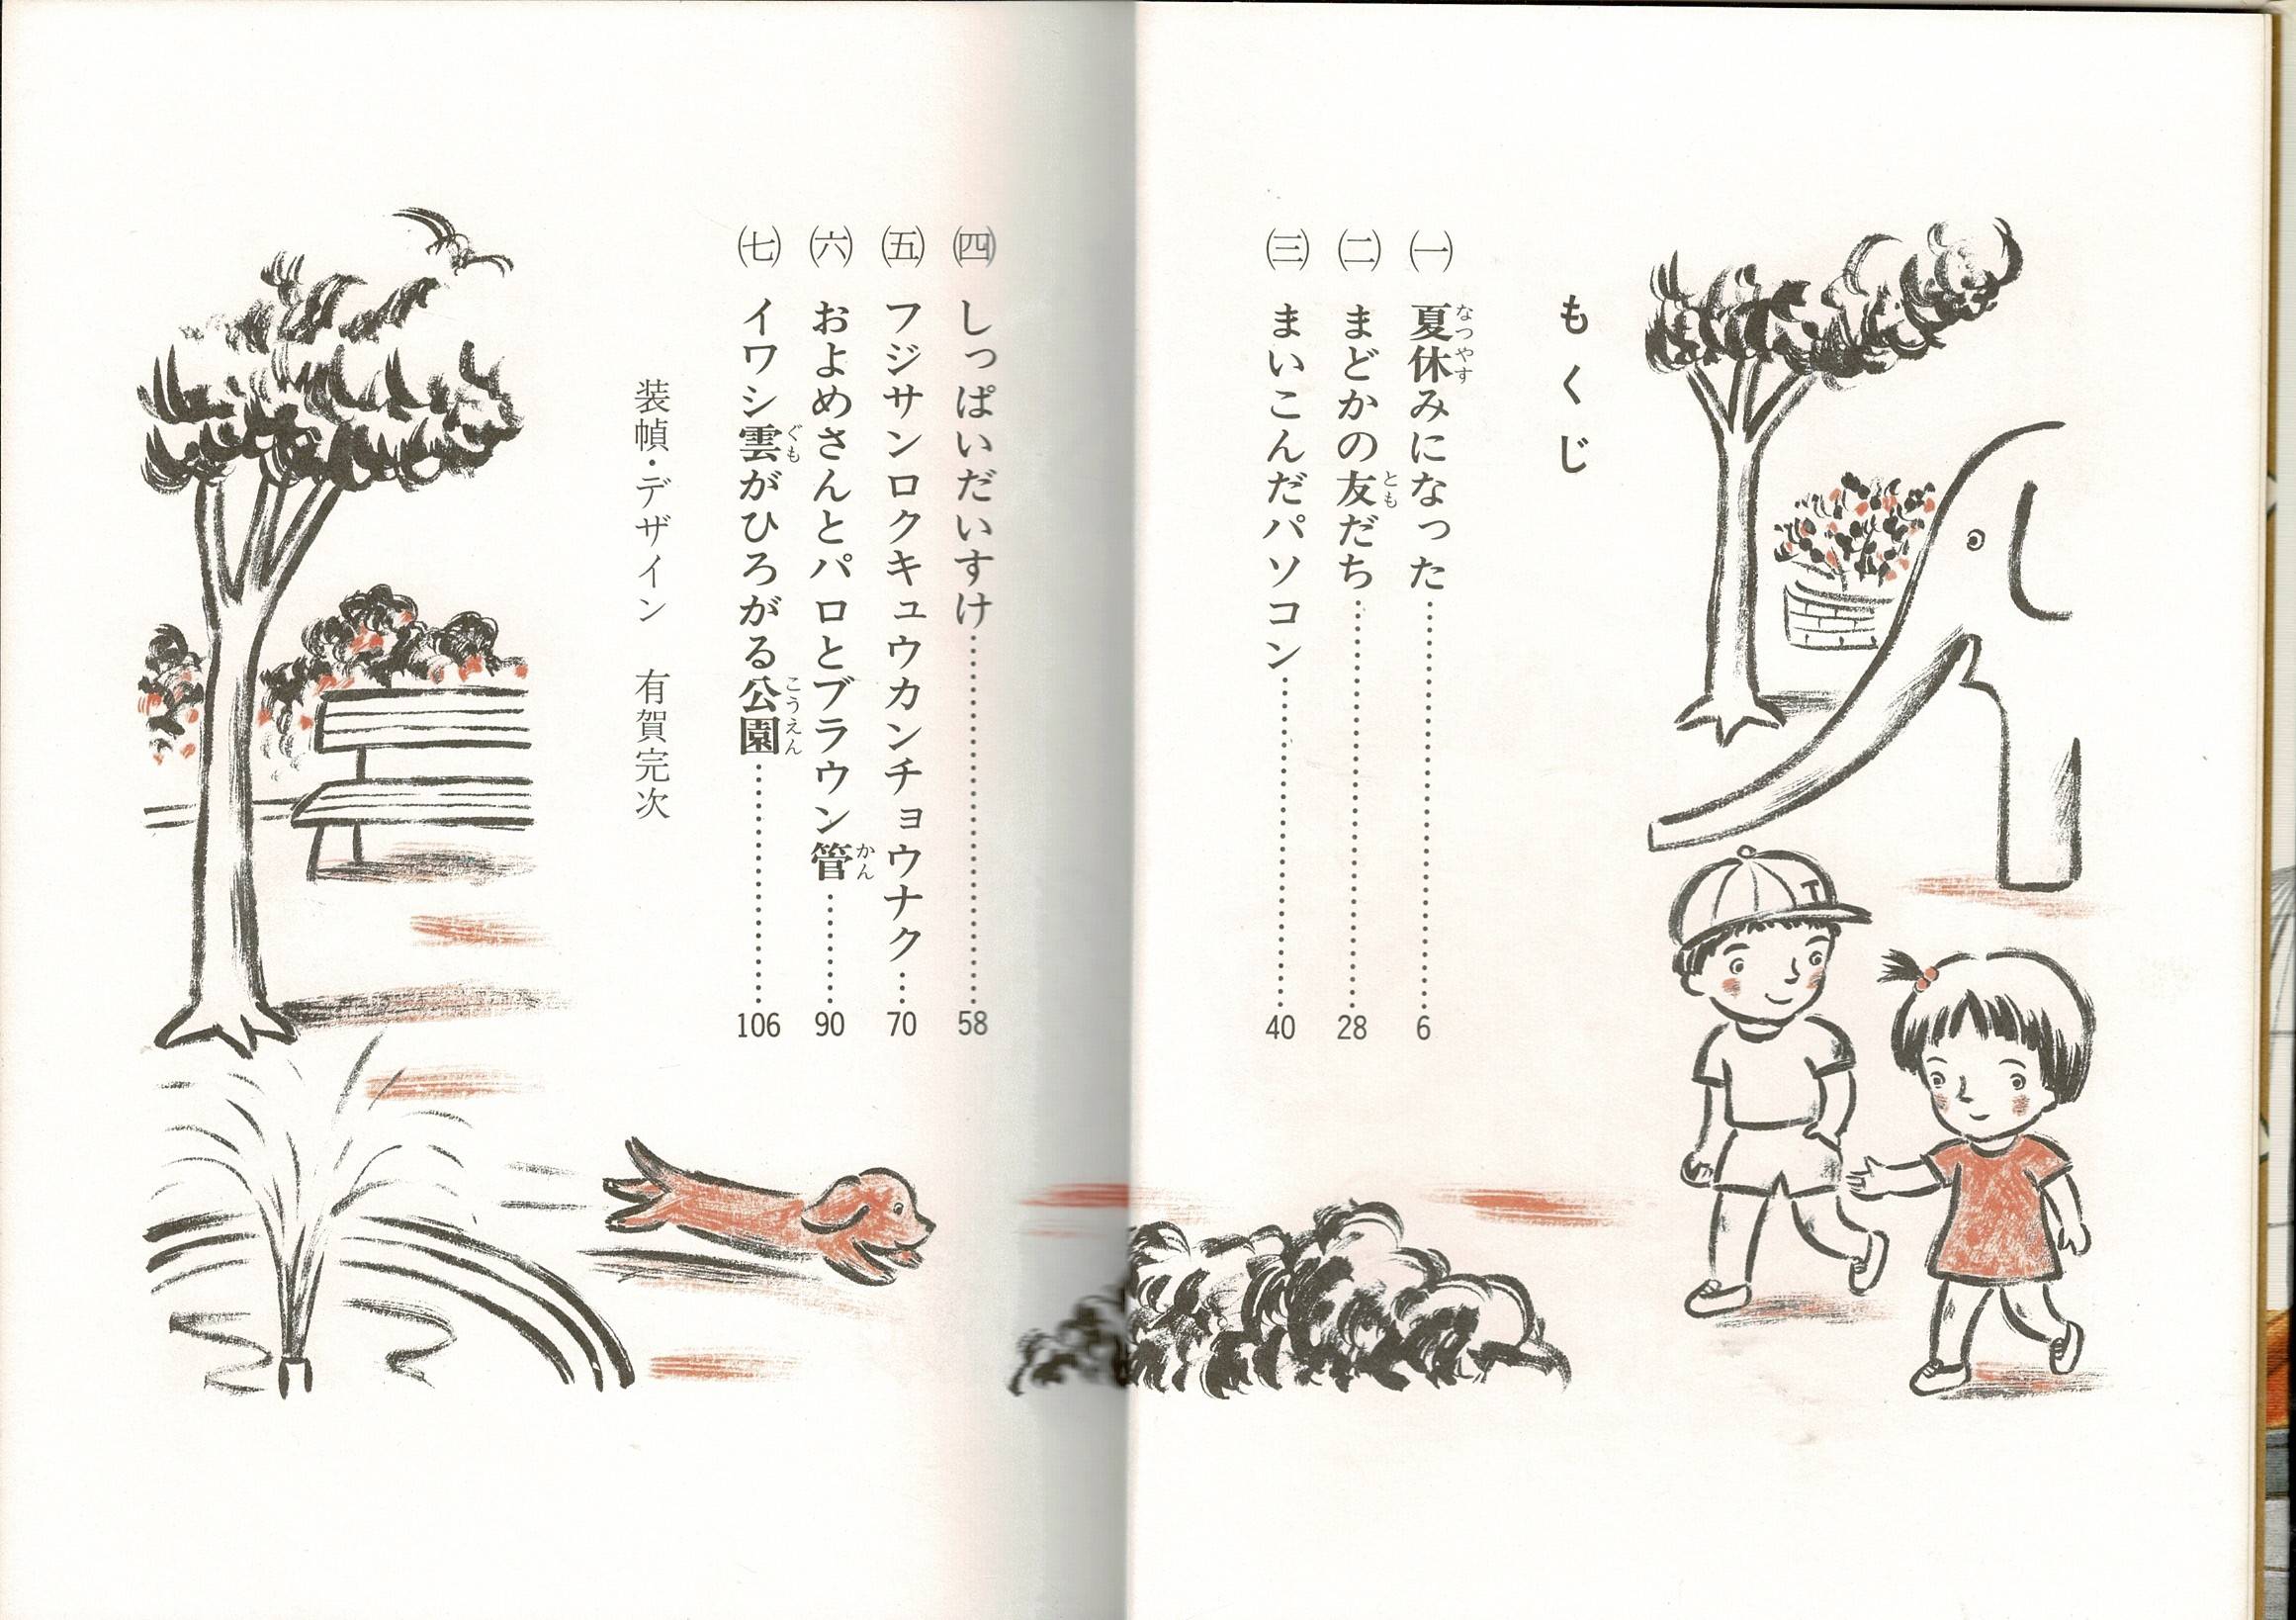 もくじ
㈠ 夏休みになった…………6
なつやす
㈡ まどかの友だち…………28
とも
㈢ まいこんだパソコン…………40
㈣ しっぱいだいすけ…………58
㈤ フジサンロクキュウカンチョウナク……70
㈥ およめさんとパロとブラウン管…………90
かん
㈦ イワシ雲がひろがる公園…………106
ぐも こうえん
装幀・デザイン 有賀完次
T